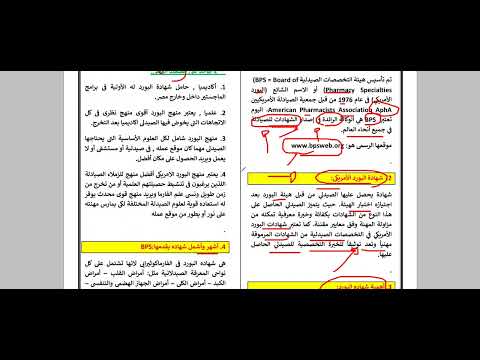 تم تأسيس هيئة التخصصات الصيدلية BPS = Board of)
Pharmacy Specialties) أو الاسم الشائع (البورد
الأمريكي) في عام 1976 من قبل جمعية الصيادلة الأمريكيين
American Pharmacists Association AphA. اليوم
BPS هي الوكالة الرائدة في إصدار الشهادات للصيادلة
في جميع أنحاء العالم.
موقعها الرسمى هو: www.bpsweb.org
2. شهادة البورد الأمريكى:
شهادة يحصل عليها الصيدلي من قبل هيئة البورد بعد
اجتيازه اختبار الهيئة. حيث يتميز الصيدلي الحاصل على
هذا النوع من الشهادات بكفاءة وخبرة معرفية تمكنه من
مزاولة المهنة وفق معايير مقننة. كما تعتبر شهادات البورد
الأمريكي في التخصصات الصيدلية من الشهادات المرموقة
مهنياً وتعد توثيقاً للخبرة التخصصية للصيدلي الحاصل
عليها.
3. اهمية شهاده البورد:
1. أكاديميا , حامل شهادة البورد له الأولوية في برامج
الماجستير داخل وخارج مصر.
2. علميا , يعتبر منهج البورد أقوى منهج نظرى فى كل
الاتجاهات التى يخوض فيها الصيدلى اكاديميا بعد التخرج.
3. منهج البورد شامل لكل العلوم الأساسية التى يحتاجها
الصيدلى مهما كان موقع عمله , فى صيدلية أو مستشفى أو لا
يعمل ويريد الحصول على مكان أفضل.
4. يعتبر منهج البورد الامريكى أفضل منهج للزملاء الصيادلة
اللذين يرغبون فى تنشيط حصيلتهم العلمية أو من تخرج من
فترة طويلة ونسى ما درسه ويريد منهج قوى يساعده على
استعادة قوية لعلوم الصيدلة المختلفة لكى يمارس مهنته
على نور أو يطور من موقع عمله
4. أشهر وأشمل شهاده يقدمها BPS:
هى شهاده البورد فى الفارماكوثيرابى لانها تشتمل على كل
نواحى المعرفة الصيدلانية مثل: أمراض القلب – أمراض
الكبد – أمراض الكلى – أمراض الجهاز الهضمى والتنفسى –